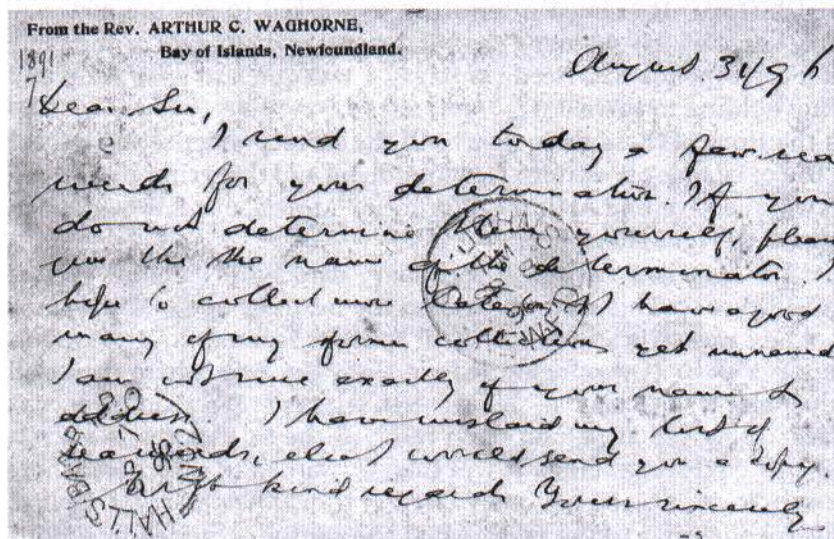 From the Rev. ARTHUR C. WAGHORNE,
Bay of Islands, Newfoundland.
1891
7
August 31/96
Dear Sir,
I send you today a few sea
weeds for your determination. If you
do not determine them yourself, please
give the the name of the determinator. I
hope to collect more later on. I have a good
many of my former collections yet unnamed
I am not sure exactly of your name &
address. I have mislaid my list of
seaweeds, else I would send you a copy.
With kind regards Yours sincerely
HALLS BAY
NFLD